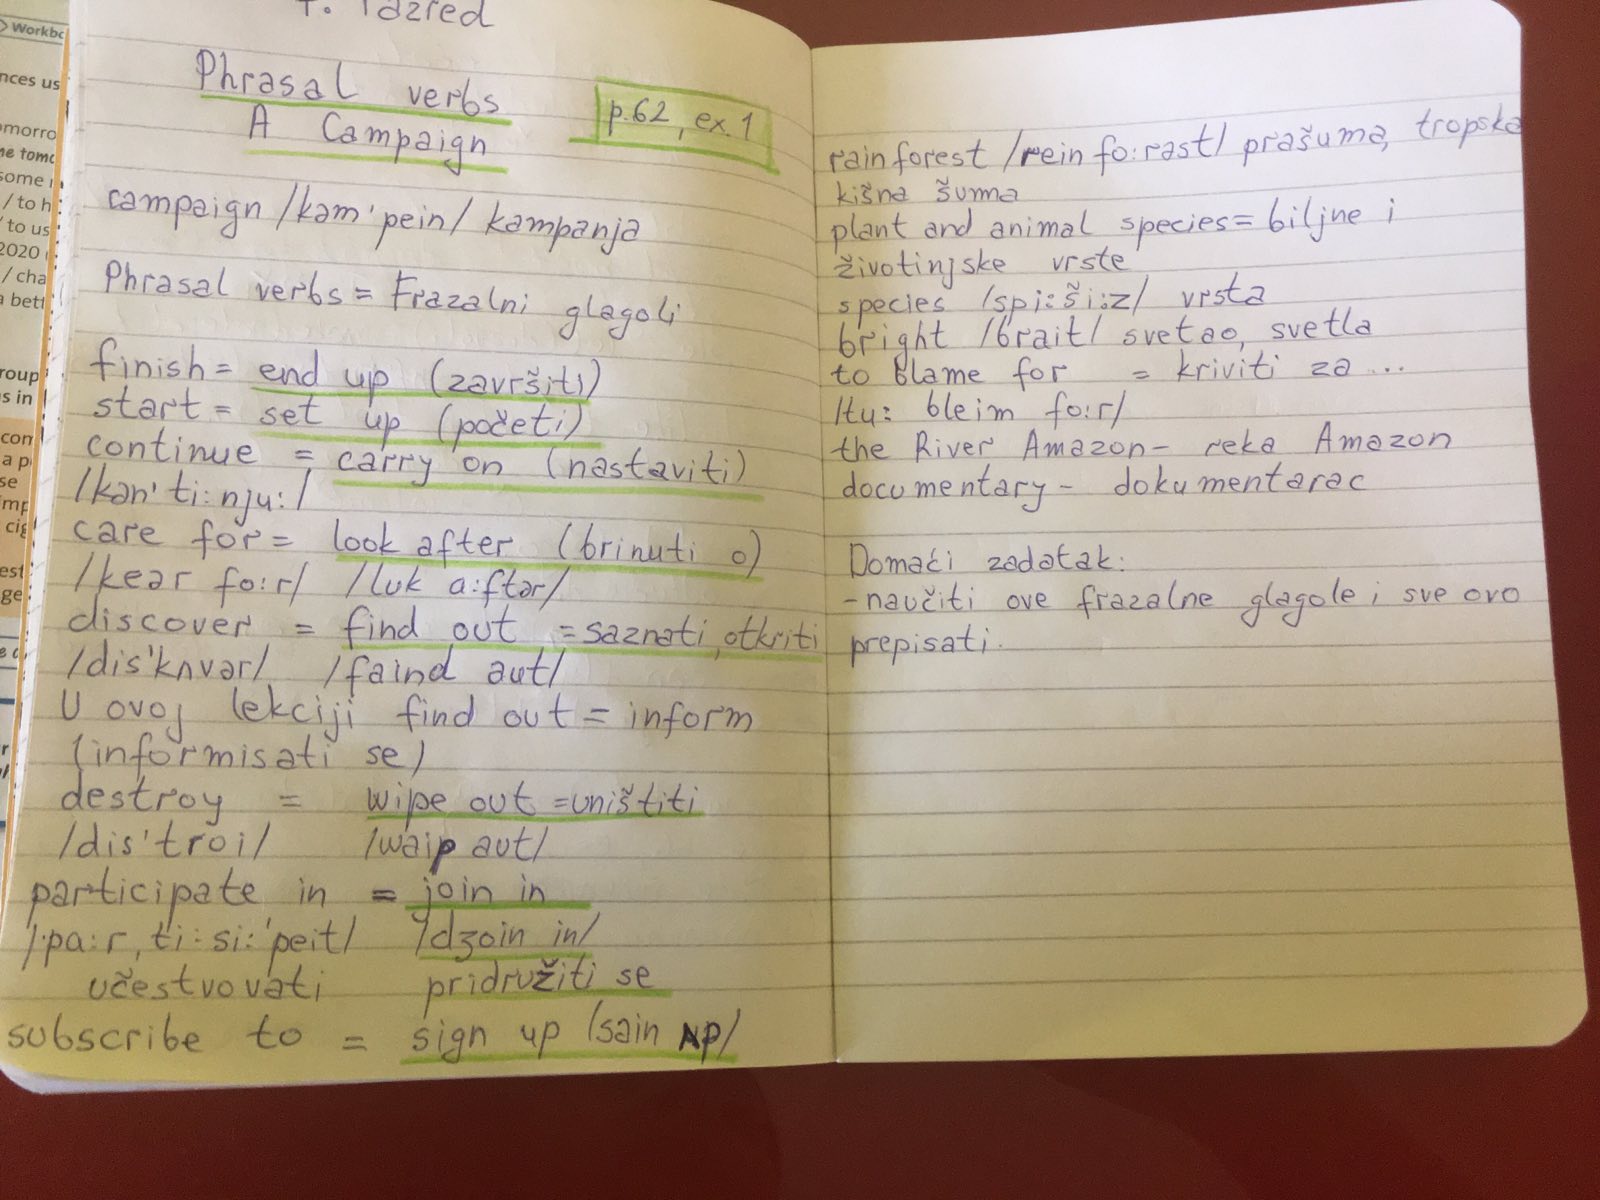 Workbo
nces us
omorro
me tomo
some
/ to h
to us
2020
/ cha
a bett
roup
s in
con
a p
se
imp
cig
est
ge
razred
Phrasal verbs
A Campaign
p.62, ex.1
campaign /kəm'pein/ kampanja
Phrasal verbs = Frazalni glagoli
finish = end up (završiti)
start = set up (početi)
continue = carry on (nastaviti)
/kən'ti:nju:/
care for = look after (brinuti o)
/kear fo:r/ /luk a:ftər/
discover = find out = saznati, otkriti
/dis'kʌvər/ /faind aut/
U ovoj lekciji find out = inform
(informisati se)
destroy = wipe out = uništiti
/dis'troi/ /waip aut/
participate in = join in
/:pa:r,ti:si:'peit/ /dʒoin in/
učestvovati pridružiti se
subscribe to = sign up /sain ʌp/
rainforest /rein fo:rəst/ prašuma, tropska
kišna šuma
plant and animal species = biljne i
životinjske vrste
species /spi:ši:z/ vrsta
bright /brait/ svetao, svetla
to blame for = kriviti za ...
/tu: bleim fo:r/
the River Amazon - reka Amazon
documentary - dokumentarac
Domaći zadatak:
-naučiti ove frazalne glagole i sve ovo
prepisati.